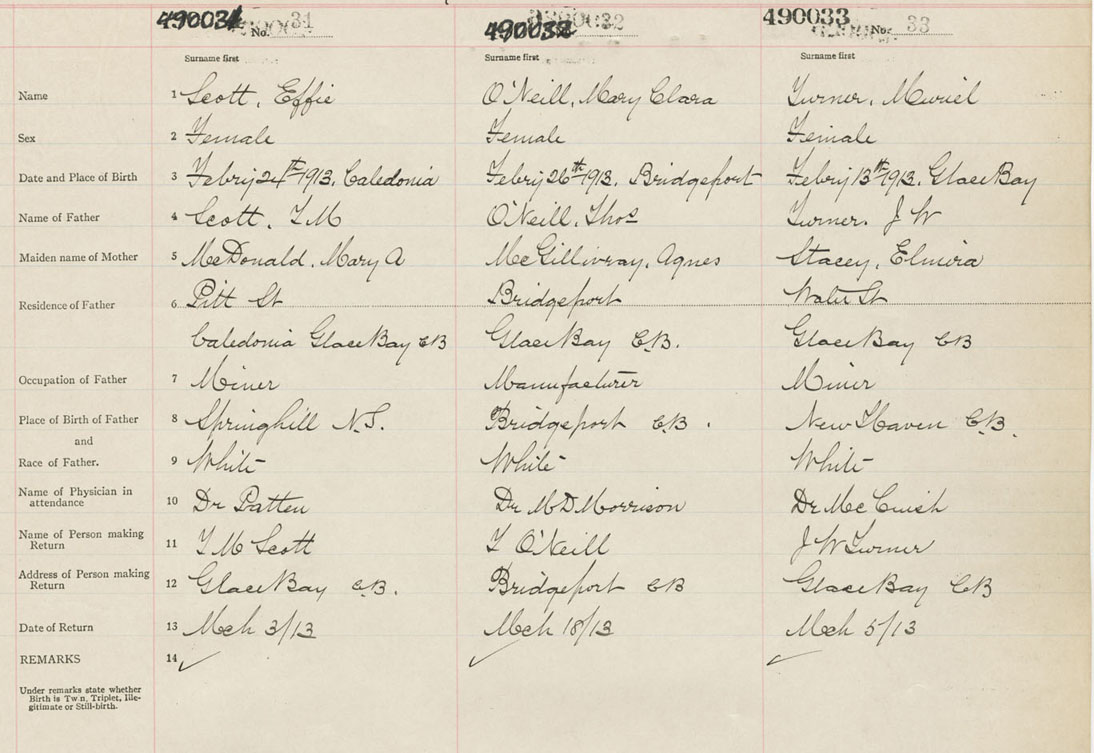 490031 No. 31 490032 32 490033 No. 33
Surname first Surname first Surname first
Name 1 Scott, Effie O'Neill, Mary Clara Turner, Muriel
Sex 2 Female Female Female
Date and Place of Birth 3 Febry 24th 1913. Caledonia Febry 26th 1913. Bridgeport Febry 13th 1913. Glace Bay
Name of Father 4 Scott, T M O'Neill, Thos Turner. J W
Maiden name of Mother 5 McDonald, Mary A McGillivray, Agnes Stacey, Elmira
Residence of Father 6 Pitt St Bridgeport Water St
Caledonia Glace Bay CB Glace Bay C.B. Glace Bay CB
Occupation of Father 7 Miner Manufacturer Miner
Place of Birth of Father 8 Springhill N.S. Bridgeport C.B. New Haven C.B.
and
Race of Father. 9 White White White
Name of Physician in
attendance 10 Dr Patten Dr M D Morrison Dr McCuish
Name of Person making
Return 11 T M Scott T O'Neill J W Turner
Address of Person making
Return 12 Glace Bay C.B. Bridgeport CB Glace Bay CB
Date of Return 13 Mch 3/13 Mch 18/13 Mch 5/13
REMARKS 14
Under remarks state whether
Birth is Twn, Triplet, Ille-
gitimate or Still-birth.